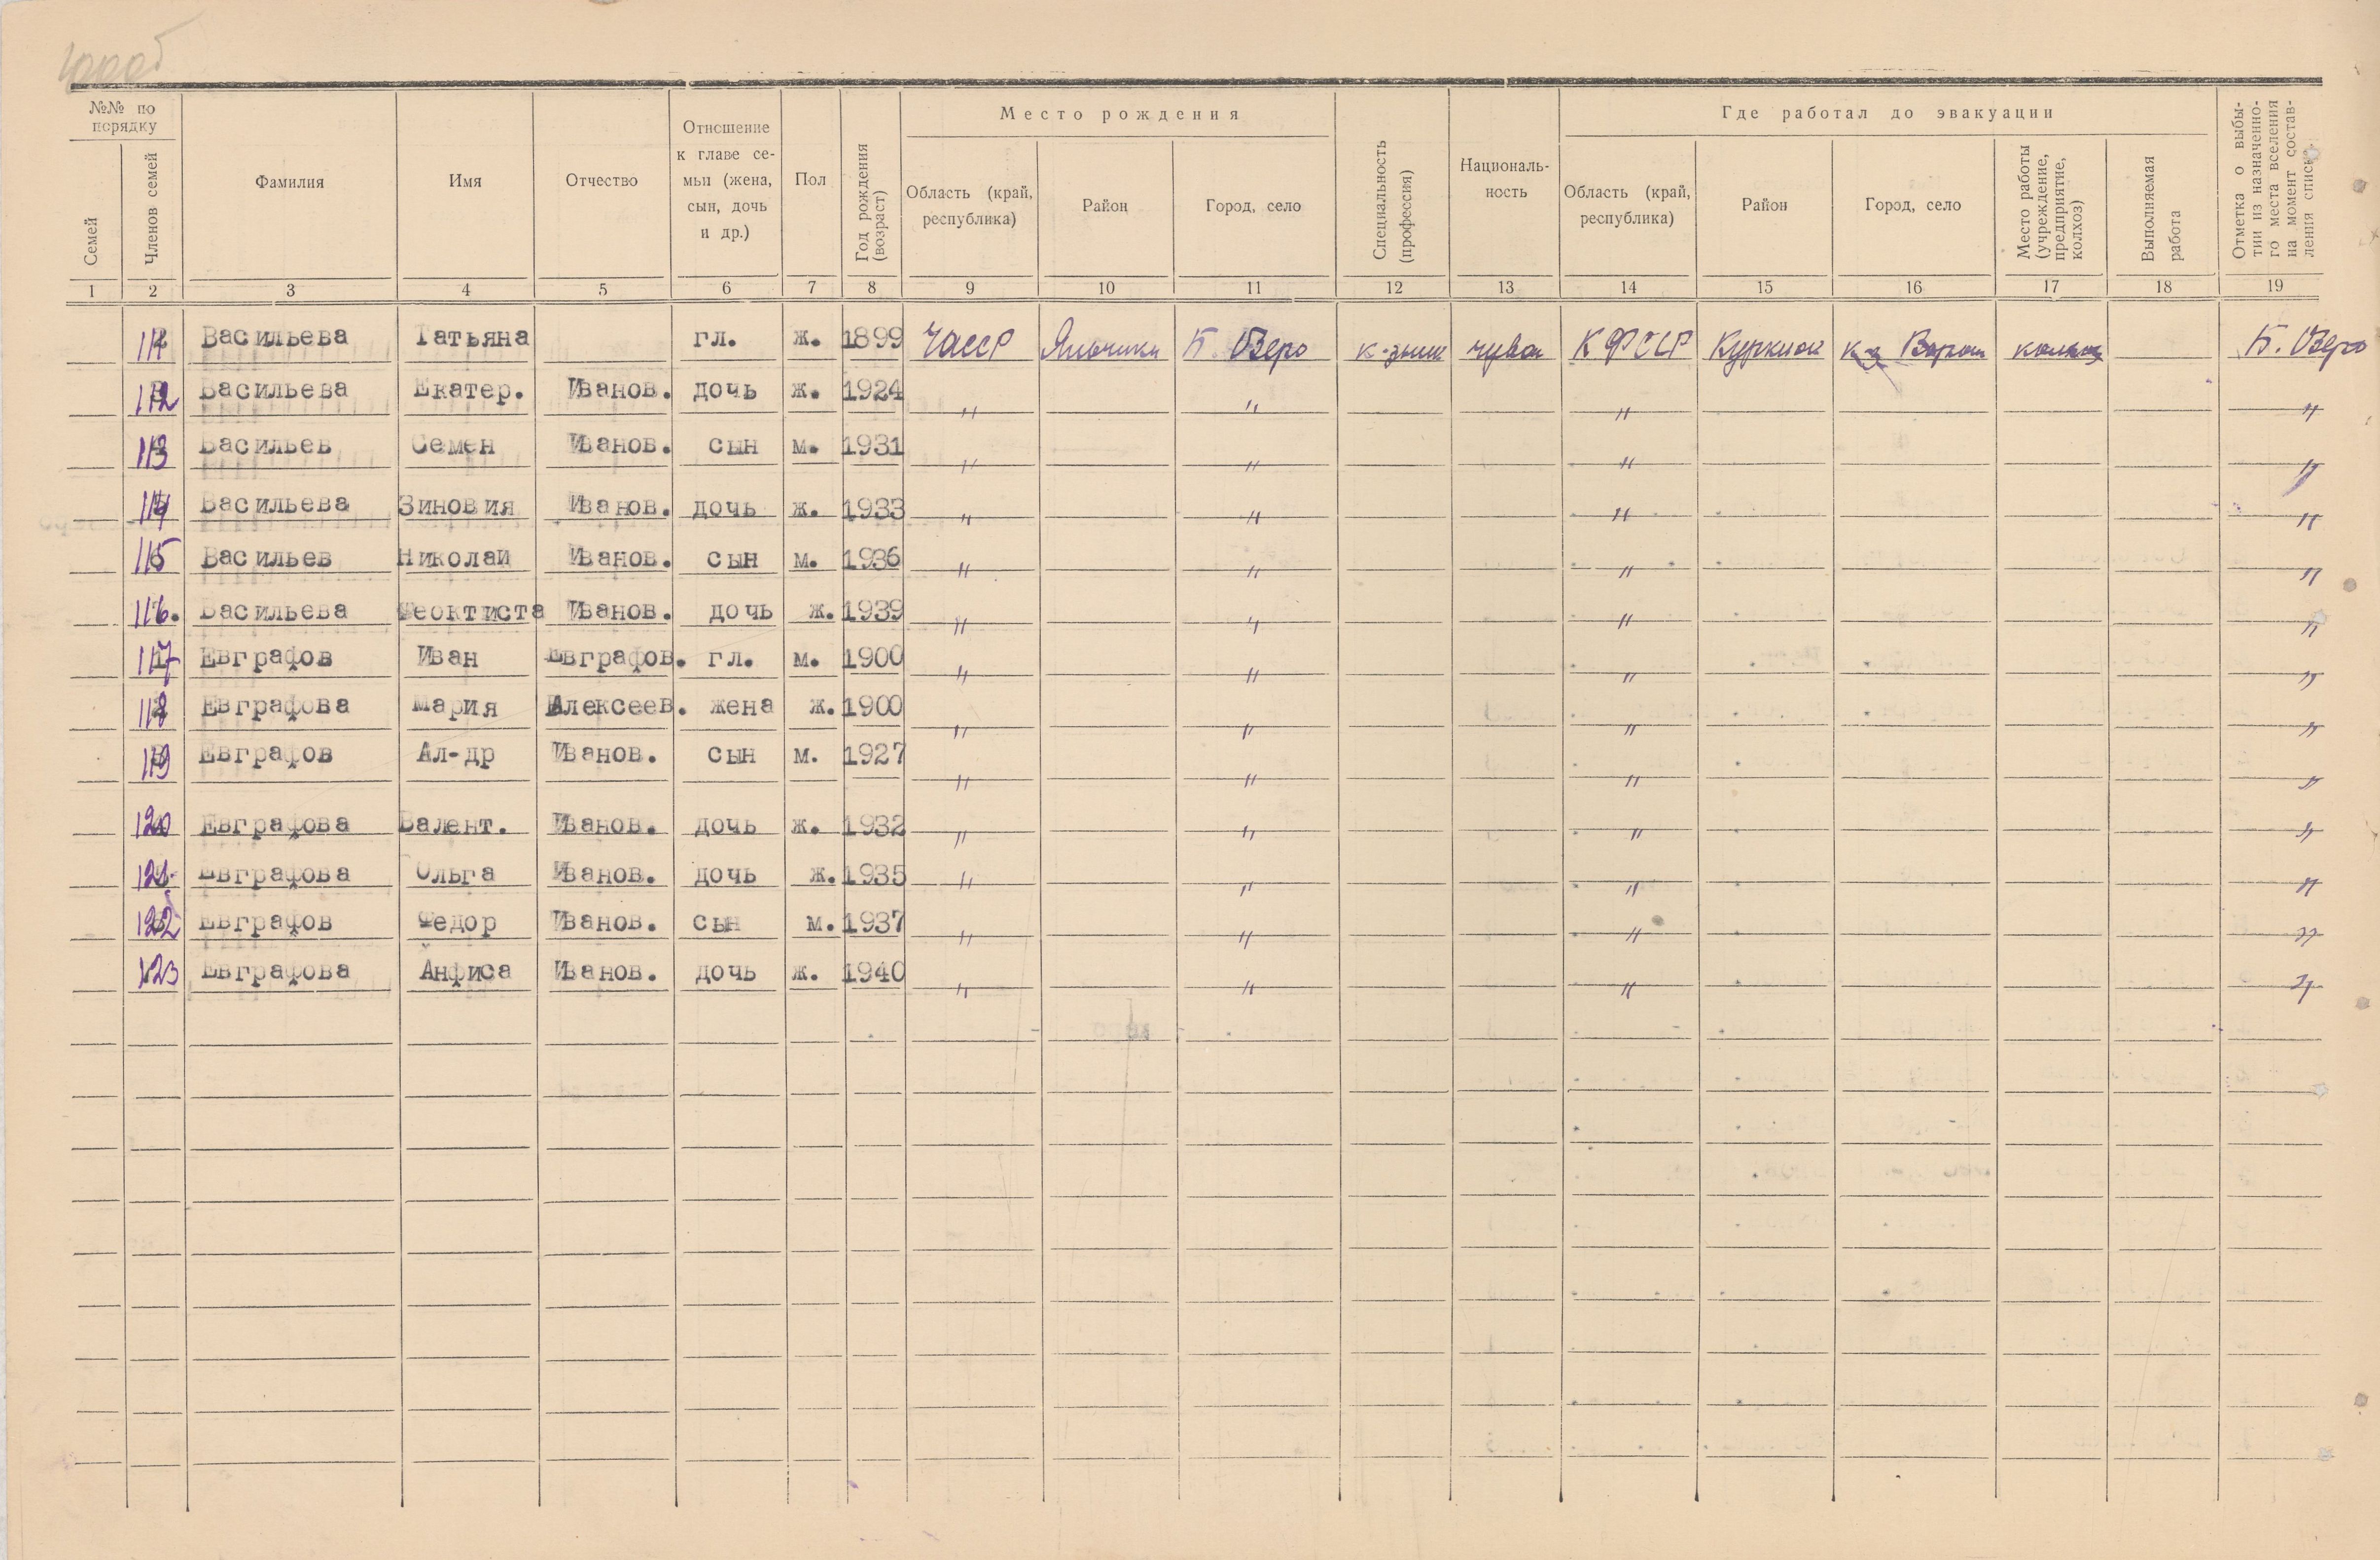 №№ по порядку
Семей
Членов семей
Фамилия
Имя
Отчество
Отношение к главе се-мьи (жена, сын, дочь и др.)
Пол
Год рождения (возраст)
Место рождения
Область (край, республика)
Район
Город, село
Специальность (профессия)
Националь-ность
Где работал до эвакуации
Область (край, республика)
Район
Город, село
Место работы (учреждение, предприятие, колхоз)
Выполняемая работа
Отметка о выбы-тии из назначенно-го места вселения на момент состав-ления списк
1 2 3 4 5 6 7 8 9 10 11 12 13 14 15 16 17 18 19
Васильева Татьяна гл. ж. 1899 ЧАССР Яльчики Б. Озеро к-зник чуваш КФССР Куркиок к-з Ворош колхоз Б. Озеро
112 Васильева Екатер. Иванов. дочь ж. 1924 " " " "
113 Васильев Семен Иванов. сын м. 1931 " " " "
114 Васильева Зиновия Иванов. дочь ж. 1933 " " " "
115 Васильев Николай Иванов. сын м. 1936 " " " "
116. Васильева Феоктиста Иванов. дочь ж. 1939 " " " "
117 Евграфов Иван Евграфов. гл. м. 1900 " " " "
118 Евграфова Мария Алексеев. жена ж. 1900 " " " "
119 Евграфов Ал-др Иванов. сын м. 1927 " " " "
120 Евграфова Валент. Иванов. дочь ж. 1932 " " " "
121 Евграфова Ольга Иванов. дочь ж. 1935 " " " "
122 Евграфов Федор Иванов. сын м. 1937 " " " "
123 Евграфова Анфиса Иванов. дочь ж. 1940 " " " "